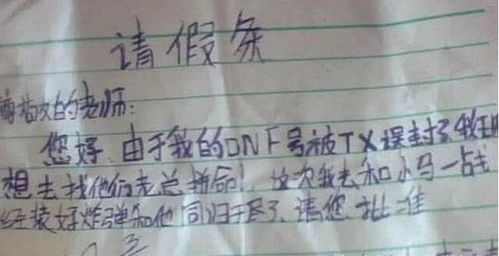 请假条
尊敬的老师:
您好,由于我的DNF号被TX误封了,我
想去找他们老总拼命!这次我去和小马一战
已经装好炸弹和他同归于尽了,请您批准